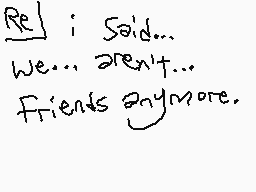 Re i said...
we... aren't...
Friends anymore.